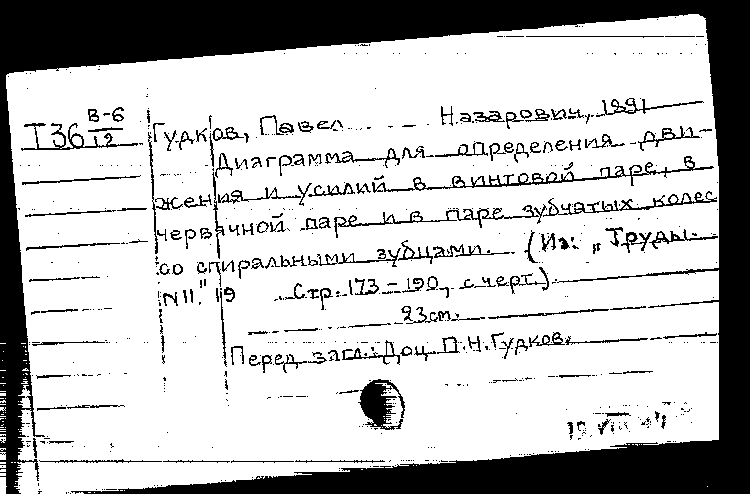 Т36 В-6/12
Гудков, Павел Назарович, 1891
Диаграмма для определения дви-
жения и усилий в винтовой паре, в
червячной паре и в паре зубчатых колес
со спиральными зубцами. (Из: „Труды.
N II." 19 Стр. 173-190, с черт.).
23 см.
Перед загл.: Доц. П.Н. Гудков.